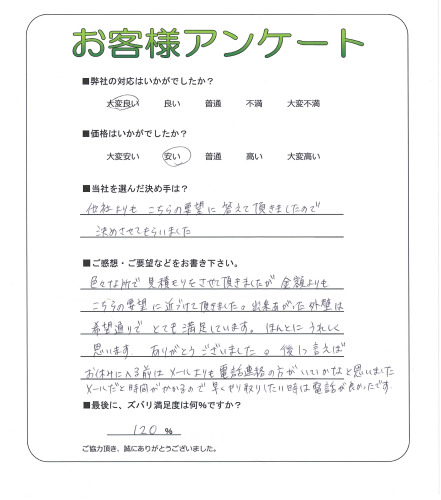 お客様アンケート
■弊社の対応はいかがでしたか?
大変良い 良い 普通 不満 大変不満
■価格はいかがでしたか?
大変安い 安い 普通 高い 大変高い
■当社を選んだ決め手は?
他社よりも こちらの要望に 答えて頂きましたので
決めさせてもらいました
■ご感想・ご要望などをお書き下さい。
色々な所で 見積もりをさせて頂きましたが 金額よりも
こちらの要望に近づけて頂きました。出来あがった外壁は
希望通りで とても満足しています。 ほんとに うれしく
思います ありがとうございました。 後1つ言えば
お休みに入る前は メールよりも 電話連絡の方がいいかなと思いました
メールだと時間がかかるので 早くやり取りしたい時は電話が良かったです
■最後に、ズバリ満足度は何%ですか?
120 %
ご協力頂き、誠にありがとうございました。